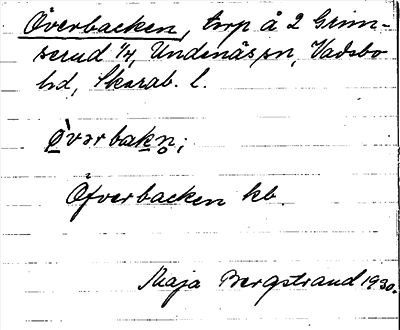 Överbacken, torp å 2 Grim-
serud 1/4, Undenäs sn, Vadsbo
hd, Skarab. l.
ø̀vərbakn̥;
Öfverbacken kb.
Maja Bergstrand 1930.